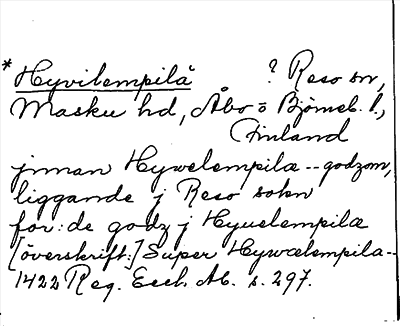 *Hyvilempilä ? Reso sn,
Masku hd, Åbo o Björneb. l.,
Finland
jnnan Hywelempilæ -- godzom,
liggande j Reso sokn
for: de godz j Hyuelempilæ
[överskrift:] Super Hywælempilæ --
1422 Reg. Eccl. Ab. s. 297.